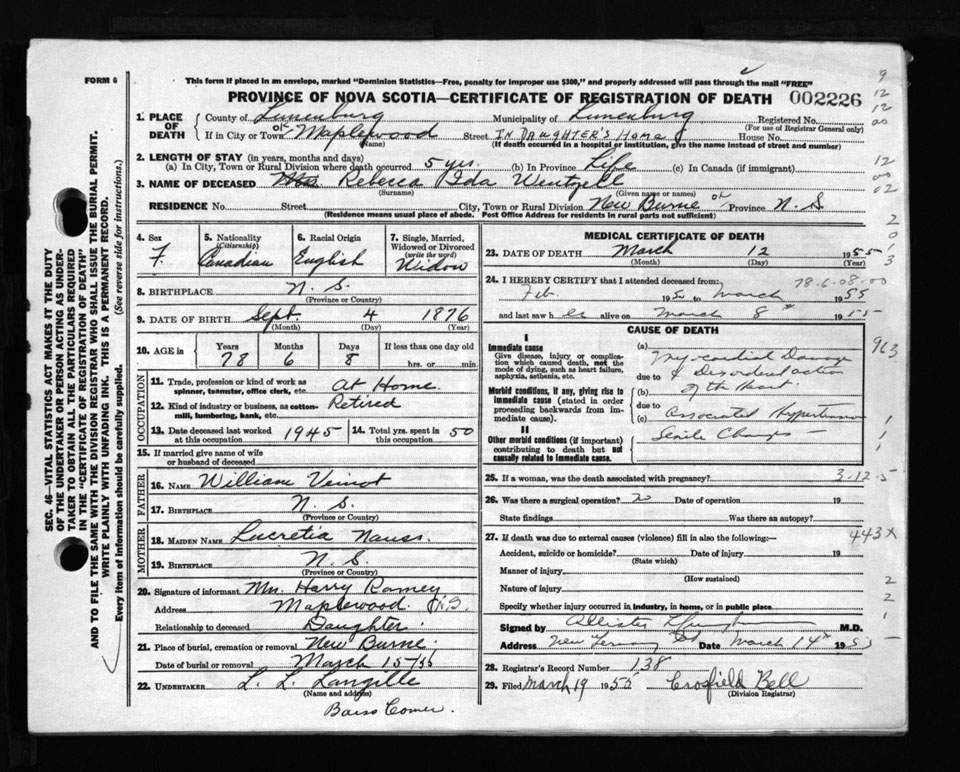 FORM 6
This form if placed in an envelope, marked "Dominion Statistics—Free, penalty for improper use $300," and properly addressed will pass through the mail "FREE"
PROVINCE OF NOVA SCOTIA—CERTIFICATE OF REGISTRATION OF DEATH 002226
1. PLACE OF DEATH
County of Lunenburg Municipality of Lunenburg Registered No.
(For use of Registrar General only)
If in City or Town Maplewood Street IN DAUGHTER'S HOME House No.
(Name) (If death occurred in a hospital or institution, give the name instead of street and number)
2. LENGTH OF STAY (in years, months and days)
(a) In City, Town or Rural Division where death occurred 5 yrs. (b) In Province Life (c) In Canada (if immigrant)
3. NAME OF DECEASED Mrs Rebecca Ida Wentzell
(Surname) (Given name or names)
RESIDENCE No. Street City, Town or Rural Division New Burne Province N. S.
(Residence means usual place of abode. Post Office Address for residents in rural parts not sufficient)
4. Sex F.
5. Nationality (Citizenship) Canadian
6. Racial Origin English
7. Single, Married, Widowed or Divorced (write the word) Widow
8. BIRTHPLACE N. S.
(Province or Country)
9. DATE OF BIRTH Sept. 4 1876
(Month) (Day) (Year)
10. AGE in Years Months Days If less than one day old
78 6 8 hrs. or min
OCCUPATION
11. Trade, profession or kind of work as spinner, teamster, office clerk, etc. At Home.
12. Kind of industry or business, as cotton-mill, lumbering, bank, etc. Retired
13. Date deceased last worked at this occupation 1945 14. Total yrs. spent in this occupation 50
15. If married give name of wife or husband of deceased
FATHER
16. NAME William Veinot
17. BIRTHPLACE N. S.
(Province or Country)
MOTHER
18. MAIDEN NAME Lucretia Nauss.
19. BIRTHPLACE N. S.
(Province or Country)
20. Signature of informant Mrs. Harry Ramey
Address Maplewood. N.S.
Relationship to deceased Daughter
21. Place of burial, cremation or removal New Burne
Date of burial or removal March 15/55
22. UNDERTAKER L. L. Langille
(Name and address)
Barss Corner.
MEDICAL CERTIFICATE OF DEATH
23. DATE OF DEATH March 12 1955
(Month) (Day) (Year)
24. I HEREBY CERTIFY that I attended deceased from: 78-6-08-00
Feb. to March 1955
and last saw her alive on March 8 1955
CAUSE OF DEATH
I
Immediate cause
Give disease, injury or complication which caused death, not the mode of dying, such as heart failure, asphyxia, asthenia, etc.
Morbid conditions, if any, giving rise to immediate cause (stated in order proceeding backwards from immediate cause).
II
Other morbid conditions (if important) contributing to death but not causally related to immediate cause.
(a) Myocardial Damage
due to & Disordered action
(b) of the Heart
due to
(c) Associated Hypertension
Senile Changes —
963
25. If a woman, was the death associated with pregnancy? 3-12-5
26. Was there a surgical operation? Date of operation 19
State findings Was there an autopsy?
27. If death was due to external causes (violence) fill in also the following:— 443X
Accident, suicide or homicide? Date of injury 19
(State which)
Manner of injury
(How sustained)
Nature of injury
Specify whether injury occurred in industry, in home, or in public place
Signed by M.D.
Address New Date March 14th 1955
28. Registrar's Record Number 138
29. Filed March 19 1955 Crosfield Bell
(Division Registrar)
SEC. 46—VITAL STATISTICS ACT MAKES IT THE DUTY
OF THE UNDERTAKER OR PERSON ACTING AS UNDER-
TAKER TO OBTAIN ALL THE PARTICULARS REQUIRED
IN THE "CERTIFICATE OF REGISTRATION OF DEATH"
AND TO FILE THE SAME WITH THE DIVISION REGISTRAR WHO SHALL ISSUE THE BURIAL PERMIT.
WRITE PLAINLY WITH UNFADING INK. THIS IS A PERMANENT RECORD.
Every item of Information should be carefully supplied. (See reverse side for instructions.)
9
12
12
00
12
00
02
2
0
1
3
1
1
1
2
2
1